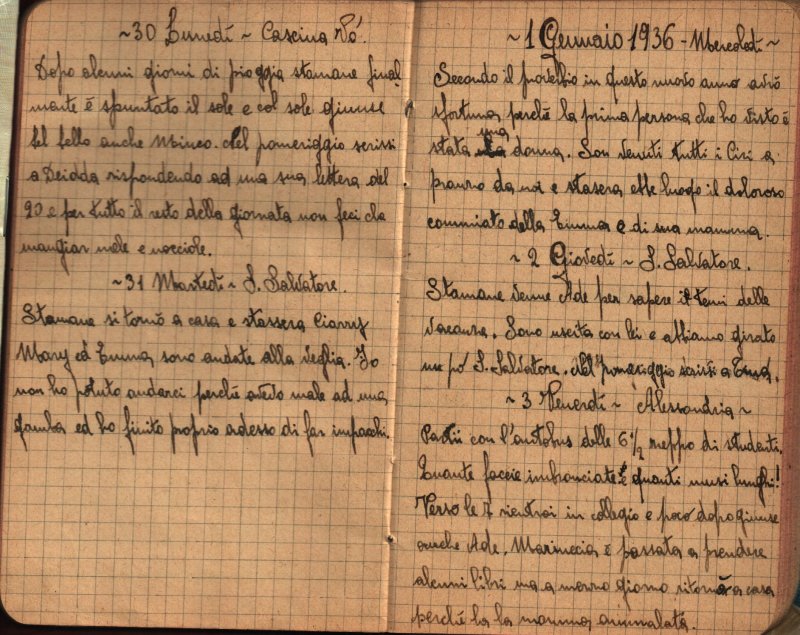 ~30 Lunedì ~ Cascina Pó.
Dopo alcuni giorni di pioggia stamane final
mente è spuntato il sole e col sole giunse
bel bello anche Mineo. Nel pomeriggio scrissi
a Deidda rispondendo ad una sua lettera del
20 e per tutto il resto della giornata non feci che
mangiar mele e nocciole.
~31 Martedì ~ S. Salvatore.
Stamane si tornò a casa e stassera Cianry
Mary ed Emma sono andate alla veglia. Io
non ho potuto andarci perché avevo male ad una
gamba ed ho finito proprio adesso di far impacchi.
~ 1 Gennaio 1936 - Mercoledì ~
Secondo il proverbio in questo nuovo anno avrò
sfortuna perché la prima persona che ho visto è
stata una donna. Son venuti tutti i Cisi a
pranzo da noi e stasera ebbe luogo il doloroso
commiato della Emma e di sua mamma.
~ 2 Giovedì ~ S. Salvatore.
Stamane venne Ade per sapere i temi delle
vacanze. Sono uscita con lei e abbiamo girato
un pó S. Salvatore. Nel pomeriggio scrissi a
~ 3 Venerdì ~ Alessandria ~
Partii con l'autobus delle 6 1/2 zeppo di studenti.
Quante faccie imbronciate e quanti musi lunghi!
Verso le 7 rientrai in collegio e poco dopo giunse
anche Ade. Mariuccia è passata a prendere
alcuni libri ma a mezzo giorno ritornò a casa
perché ha la mamma ammalata.